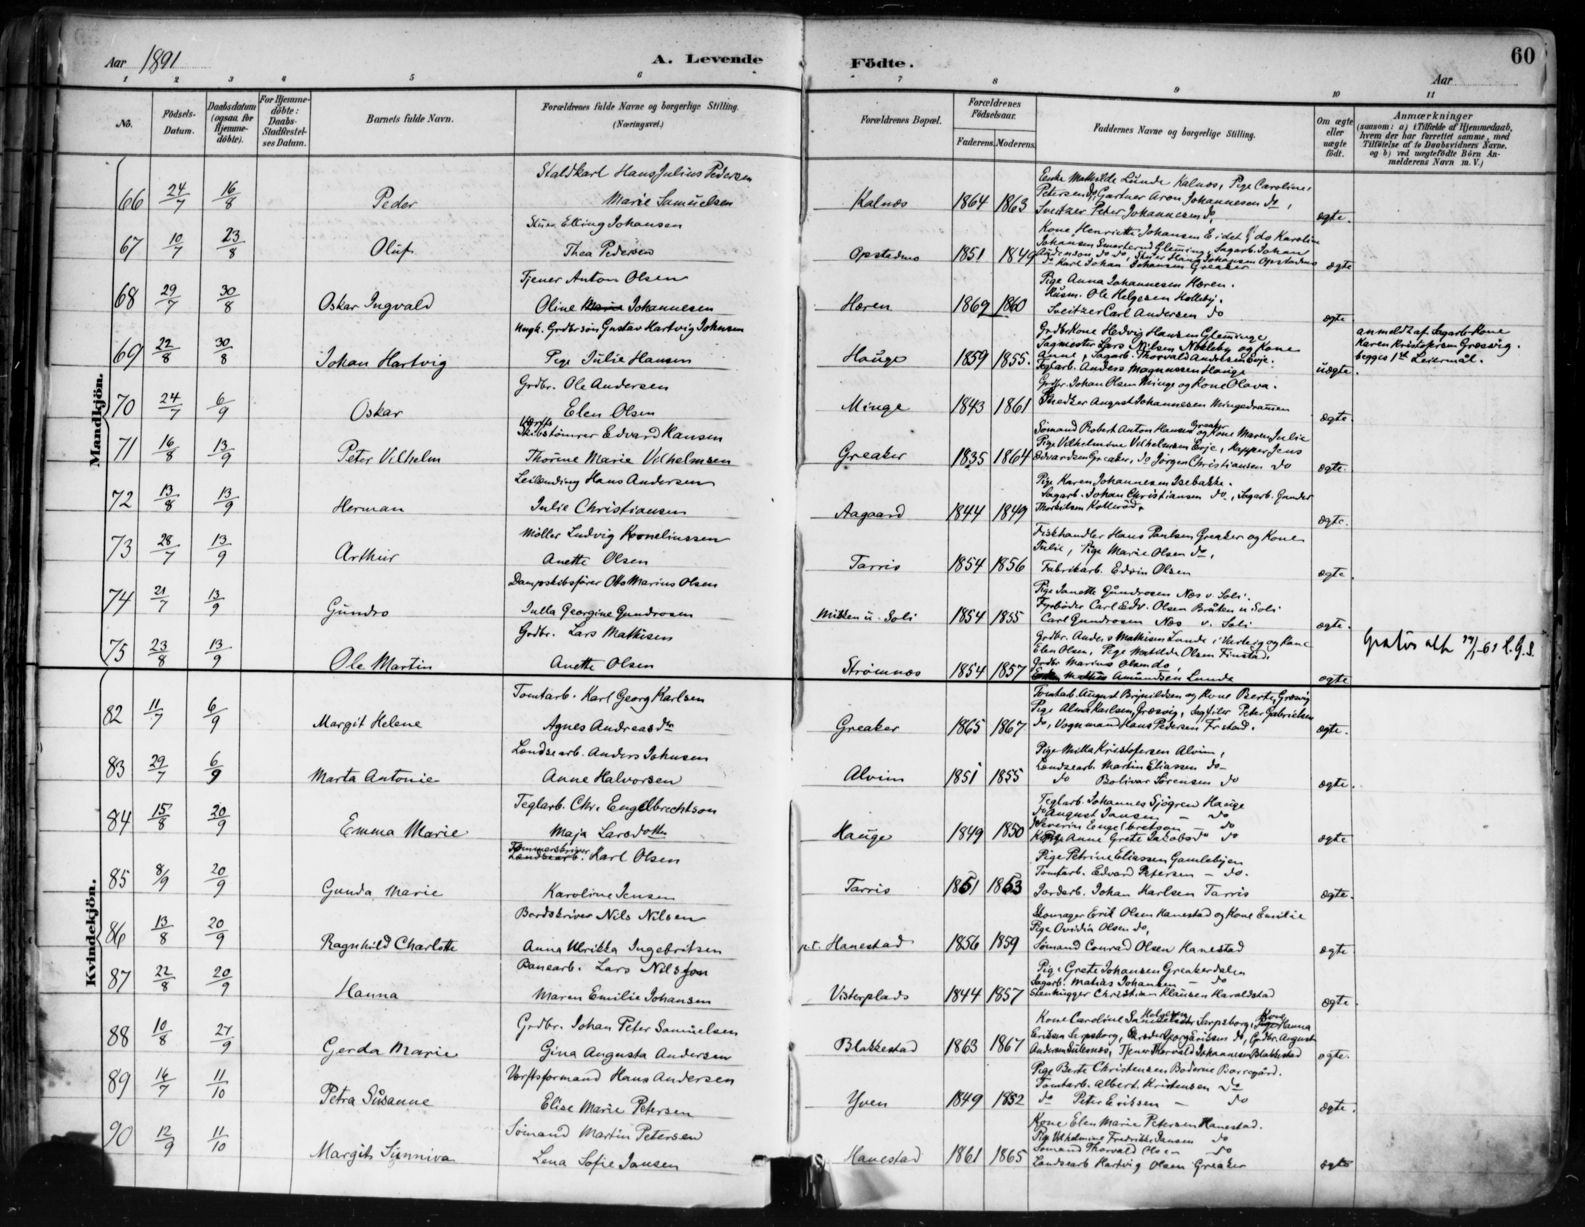 Aar 1891
A. Levende Fødte.
60
Aar
1 2 3 4 5 6 7 8 9 10 11
No.
Fødsels-Datum.
Daabsdatum (ogsaa for Hjemmedøbte).
For Hjemmedøbte: Daabs-Stadfestelses Datum.
Barnets fulde Navn.
Forældrenes fulde Navne og borgerlige Stilling. (Næringsvei.)
Forældrenes Bopæl.
Forældrenes Fødselsaar.
Faderens. Moderens.
Faddernes Navne og borgerlige Stilling.
Om ægte eller uægte født.
Anmærkninger
(saasom: a) i Tilfælde af Hjemmedaab, hvem der har forrettet samme, med Tilføielse af to Daabsvidners Navne. og b) ved uægtefødte Børn Anmelderens Navn m. V.)
Mandkjön.
66 24/7 16/8 Peder
Staldkarl Hans Julius Pedersen
Marie Samuelsen
Kalnæs 1864 1863
Enke Mathilde Lunde Kalnæs, Pige Caroline
Petersen do, Gartner Aron Johannesen do,
Sveitzer Peter Johannesen do
ægte.
67 10/7 23/8 Oluf
Elling Johansen
Thea Pedersen
Opstadmo 1851 1849
Kone Henriette Johansen Eidet, do Karoline
do Karl Johan Johansen Greaker
ægte
68 29/7 30/8 Oskar Ingvald
Tjener Anton Olsen
Oline Marie Johannesen
Hæren 1869 1860
Pige Anna Johannesen Hæren.
Husm. Ole Helgesen Kollebj.
Sveitzer Carl Andersen do
ægte
69 22/8 30/8 Johan Hartvig
Ungk. Grdbrsøn Gustav Hartvig Johnsen
Pige Julie Hansen
Hauge 1859 1855.
Grdbrkone Hedvig Hansen Glemminge
Sagmester Lars Nilsen Nobleby og Kone
Anne, Sagarb. Thorvald
Teglarb. Anders Magnussen Hauge
uægte.
anmeldt af Sagarb. Kone
Karen Kristofersen Græsvig.
begges 1ste Leiermål.
70 24/7 6/9 Oskar
Grdbr. Ole Andersen
Elen Olsen
Minge 1843 1861
Grdbr. Johan Olsen Minge og Kone Olava.
Sveitzer August Johannesen Mingedrammen
ægte
71 16/8 13/9 Peter Vilhelm
Værfts
Skibstømrer Edvard Hansen
Thorine Marie Vilhelmsen
Greaker 1835 1864
Sømand Robert Anton Hansen Greaker og Kone Maren Julie
Pige Vilhelmine Vilhelmsen Evje, Jens
Edvardsen Greaker, do Jørgen Christiansen do
ægte
72 13/8 13/9 Herman
Leilending Hans Andersen
Julie Christiansen
Aagaard 1844 1849
Pige Karen Johannesen Isebakke.
Sagarb. Johan Christiansen do, Sagarb. Gunder
Thorkilsen Kollerød.
ægte.
73 28/7 13/9 Arthur
Møller Ludvig Korneliussen
Anette Olsen
Tarris 1854 1856
Fiskhandler Hans Paulsen Greaker og Kone
Julie, Pige Marie Olsen do,
Fabrikarb. Edvin Olsen
ægte.
74 21/7 13/9 Gundro
Dampskibsfører Otto Marius Olsen
Julla Georgine Gundrosen
Mitken u. Soli 1854 1855
Pige Janette Gundrosen Næs v. Soli.
Fyrbøder Carl Edv. Olsen Bråten u Soli
Carl Gundrosen Næs v. Soli
ægte.
75 23/8 13/9 Ole Martin
Grdbr. Lars Mathisen
Anette Olsen
Strømnæs 1854 1857
Grdbr. Anders Mathisen Lunde i Varteig og Kone
Elen Olsen, Pige Matilde Olsen Finstad.
Grdbr Marius Olsen do,
Amundsen Lunde
ægte
Gratis
Kvindekjön.
82 11/7 6/9 Margit Helene
Tomtarb. Karl Georg Karlsen
Agnes Andreasdtr
Greaker 1865 1867
Tomtarb. August Brynildsen og Kone Berte, Græsvig
Pige Alma Karlsen, Græsvig, Sagfiler Peter Gabrielsen
do, Vognmand Hans Pedersen Frstad.
ægte.
83 29/7 6/9 Marta Antonie
Landsearb. Anders Johnsen
Anne Halvorsen
Alvim 1851 1855
Pige Milla Kristofersen Alvim,
Landsearb Martin Eliassen do
do Bolivar Sørensen do
ægte.
84 15/8 20/9 Emma Marie
Teglarb. Chr. Engelbrechtson
Maja Larsdotter
Hauge 1849 1850
Teglarb. Johannes Sjøgren Hauge
do August Jansen — do
do Severin Engelbretson — do
Pige Anne Grete Jakobsd do
ægte
85 8/9 20/9 Gunda Marie
Tømmerskriver
Landsearb. Karl Olsen
Karoline Jensen
Tarris 1861 1863
Pige Petrine Eliassen Gamlebyen
Tomtarb. Edvard Petersen — do.
Jordarb. Johan Karlsen Tarris
ægte
86 13/8 20/9 Ragnhild Charlotte
Bordskriver Nils Nilsen
Anna Ulrikka Ingebritsen
p.t. Hanestad 1856 1859
Skomager Erik Olsen Hanestad og Kone Emilie
Pige Ovidia Olsen do,
Sømand Conrad Olsen Hanestad
ægte
87 22/8 20/9 Hanna
Banearb. Lars Nilsson
Maren Emilie Johansen
Visterplads 1844 1857
Pige Grete Johansen Greakerdalen
Sagarb. Matias Johansen — do
Stenhugger Christian Klausen Haraldstad
ægte.
88 10/8 27/9 Gerda Marie
Grdbr. Johan Peter Samuelsen
Gina Augusta Andersen
Blakkestad 1863 1867
Kone Caroline Sarpsborg, Kone Hanna
Eriksen Sarpsborg, Georg Eriksen do, Grdbr. August
Andersen, Tjener Thorvald Johannesen Blakkestad
ægte.
89 16/7 11/10 Petra Susanne
Værftsformand Hans Andersen
Elise Marie Petersen
Yven 1849 1852
Pige Berte Christensen Boderne Borregård.
Tomtarb. Albert Kristensen do
do Peter Eriksen — do
ægte.
90 12/9 11/10 Margit Sunniva
Sømand Martin Petersen
Lena Sofie Jansen
Hanestad 1861 1865
Kone Elen Marie Petersen Hanestad.
Pige Vilhelmine Fredrikke Jansen do
Sømand Thorvald Olsen do
Landsearb Hartvig Olsen Greaker
ægte